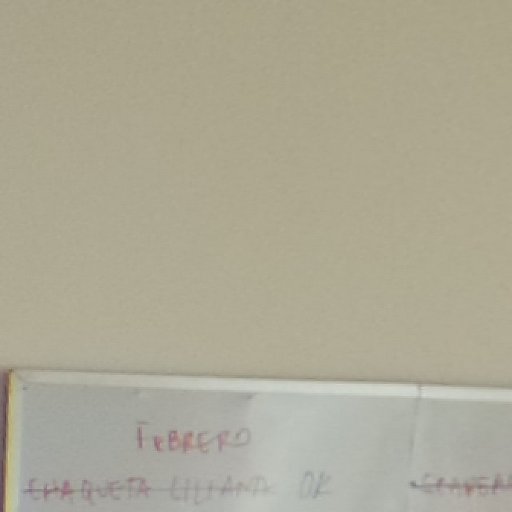 FEBRERO
CHAQUETA LILIANA OK